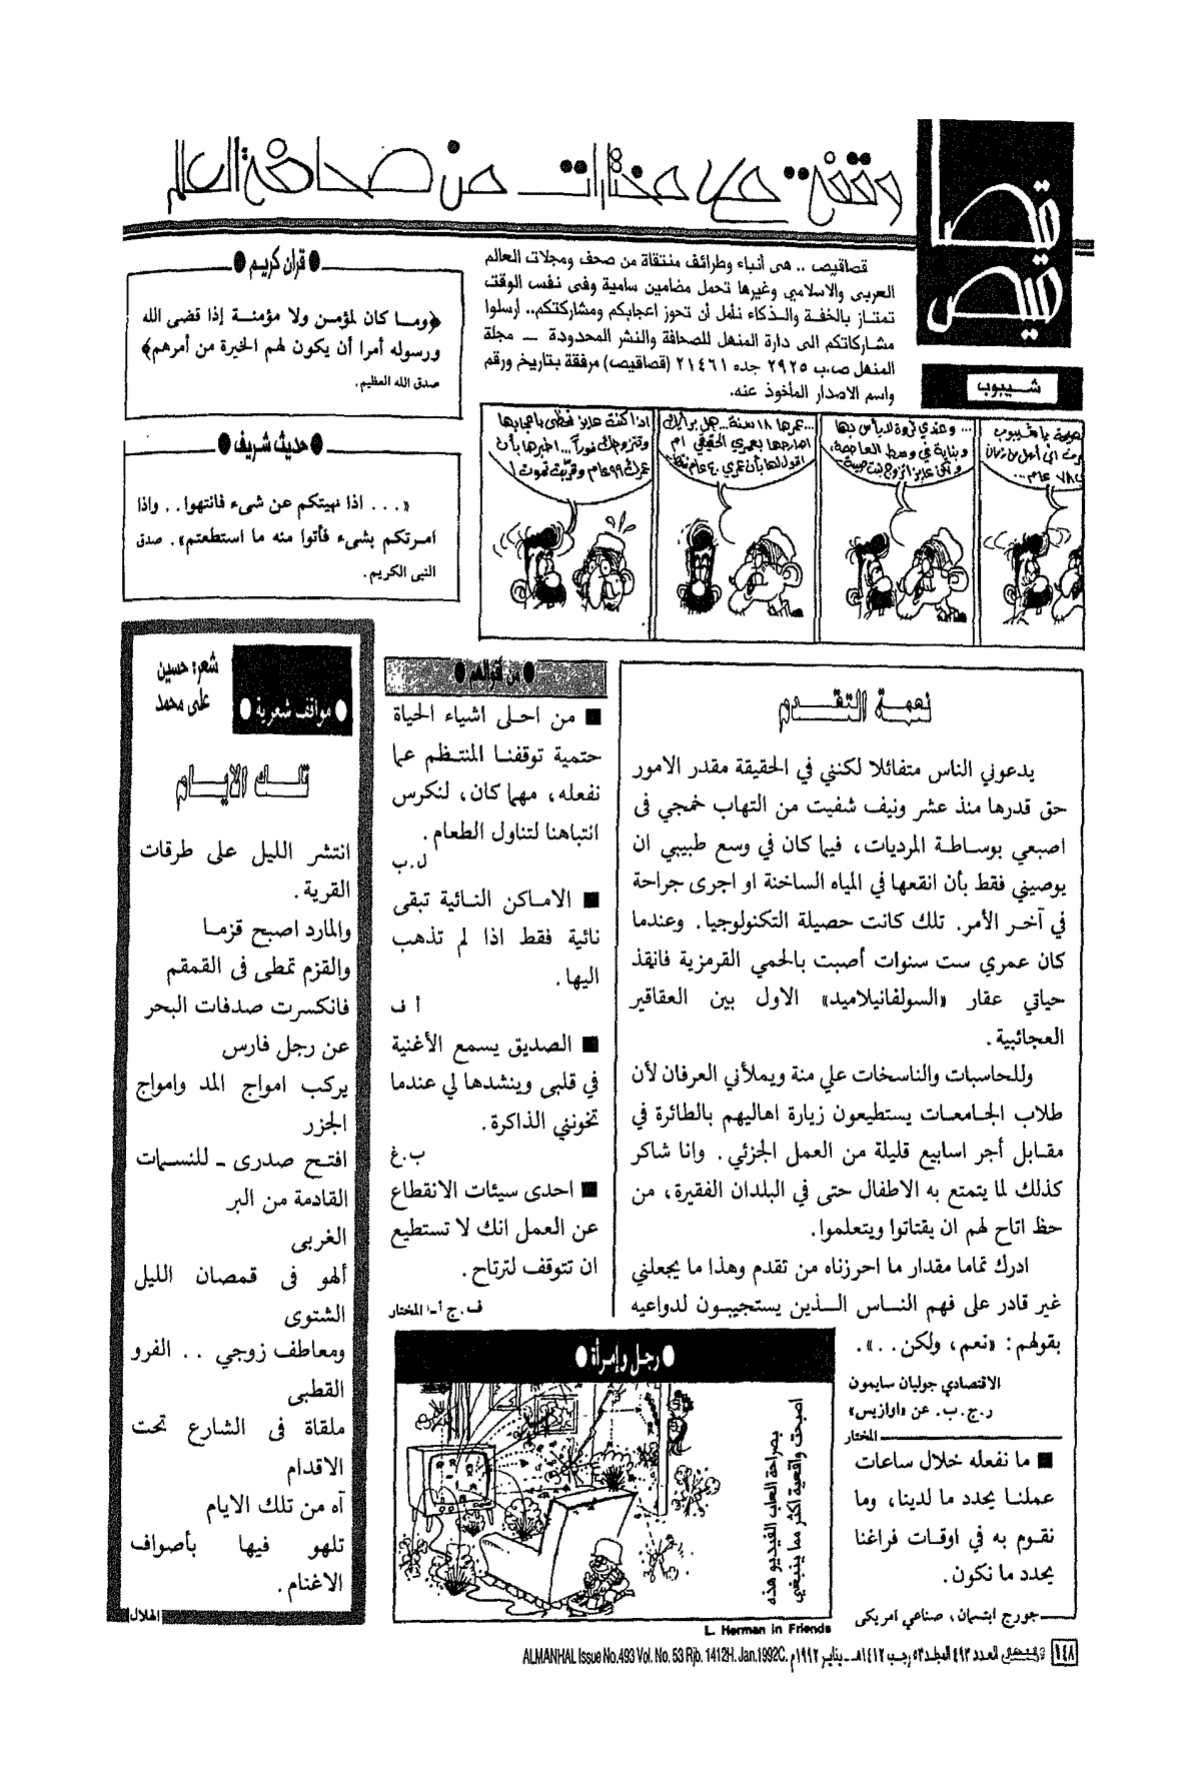 وقفة.. على مختارات من صحافة العالم
قصا
قيص
قصاقيص .. هى أنباء وطرائف منتقاة من صحف ومجلات العالم
العربى والاسلامي وغيرها تحمل مضامين سامية وفى نفس الوقت
تمتاز بالخفة والذكاء نأمل أن تحوز اعجابكم ومشاركتكم.. أرسلوا
مشاركاتكم الى دارة المنهل للصحافة والنشر المحدودة ــ مجلة
المنهل ص.ب ٢٩٢٥ جده ٢١٤٦١ (قصاقيص) مرفقة بتاريخ ورقم
واسم الاصدار المأخوذ عنه.
● قرآن كريم ●
﴿وما كان لمؤمن ولا مؤمنة إذا قضى الله
ورسوله أمرا أن يكون لهم الخيرة من أمرهم﴾
صدق الله العظيم.
● حديث شريف ●
«... اذا نهيتكم عن شىء فانتهوا.. واذا
امرتكم بشىء فأتوا منه ما استطعتم». صدق
النبى الكريم.
شيبوب
يا شيبوب
٧٨ عام...
... وعندي ثروة لا بأس بها
وبناية في وسط العاصمة،
وبدي عايز اتزوج بنت صبية
...عمرها ١٨ سنة...هل برأيك
اصارحها بعمري الحقيقي ام
اقول لها بأن عمري ٤٠ عام فقط
اذا كنت عايز تحظى باعجابها
وتتزوجك فوراً...اخبرها بأن
عمرك ٩٩ عام وقربت تموت!
نعمة التقدم
يدعوني الناس متفائلا لكنني في الحقيقة مقدر الامور
حق قدرها منذ عشر ونيف شفيت من التهاب خمجي فى
اصبعي بوساطة المرديات، فيما كان في وسع طبيبي ان
يوصيني فقط بأن انقعها في المياه الساخنة او اجرى جراحة
في آخر الأمر. تلك كانت حصيلة التكنولوجيا. وعندما
كان عمري ست سنوات أصبت بالحمي القرمزية فانقذ
حياتي عقار «السولفانيلاميد» الاول بين العقاقير
العجائبية.
وللحاسبات والناسخات علي منة ويملأني العرفان لأن
طلاب الجامعات يستطيعون زيارة اهاليهم بالطائرة في
مقابل أجر اسابيع قليلة من العمل الجزئي. وانا شاكر
كذلك لما يتمتع به الاطفال حتى في البلدان الفقيرة، من
حظ اتاح لهم ان يقتاتوا ويتعلموا.
ادرك تماما مقدار ما احرزناه من تقدم وهذا ما يجعلني
غير قادر على فهم الناس الذين يستجيبون لدواعيه
بقولهم: «نعم، ولكن..».
الاقتصادي جوليان سايمون
ر.ج.ب. عن «اوازيس»
المختار
■ ما نفعله خلال ساعات
عملنا يحدد ما لدينا، وما
نقوم به في اوقات فراغنا
يحدد ما نكون.
جورج ابتسمان، صناعي امريكى
● من أقوالهم ●
■ من احلى اشياء الحياة
حتمية توقفنا المنتظم عما
نفعله، مهما كان، لنكرس
انتباهنا لتناول الطعام.
ل.ب
■ الاماكن النائية تبقى
نائية فقط اذا لم تذهب
اليها.
أ ف
■ الصديق يسمع الأغنية
في قلبى وينشدها لي عندما
تخونني الذاكرة.
ب.غ
■ احدى سيئات الانقطاع
عن العمل انك لا تستطيع
ان تتوقف لترتاح.
ف.ج أ-: المختار
● رجل وإمرأة ●
بصراحة العاب الفيديو هذه
اصبحت واقعية اكثر مما ينبغي
L. Herman in Friends
● مواقف شعرية ●
شعر: حسين
على محمد
تلك الايام
انتشر الليل على طرقات
القرية.
والمارد اصبح قزما
والقزم تمطى فى القمقم
فانكسرت صدفات البحر
عن رجل فارس
يركب امواج المد وامواج
الجزر
افتح صدرى ـ للنسمات
القادمة من البر
الغربى
ألهو فى قمصان الليل
الشتوى
ومعاطف زوجي .. الفرو
القطبى
ملقاة فى الشارع تحت
الاقدام
آه من تلك الايام
تلهو فيها بأصواف
الاغنام.
الهلال
١٤٨ المنهل العدد ٤٩٣ المجلد ٥٣ رجب ١٤١٢هـ ـ يناير ١٩٩٢م ALMANHAL Issue No.493 Vol. No. 53 Rjb. 1412H. Jan.1992C.